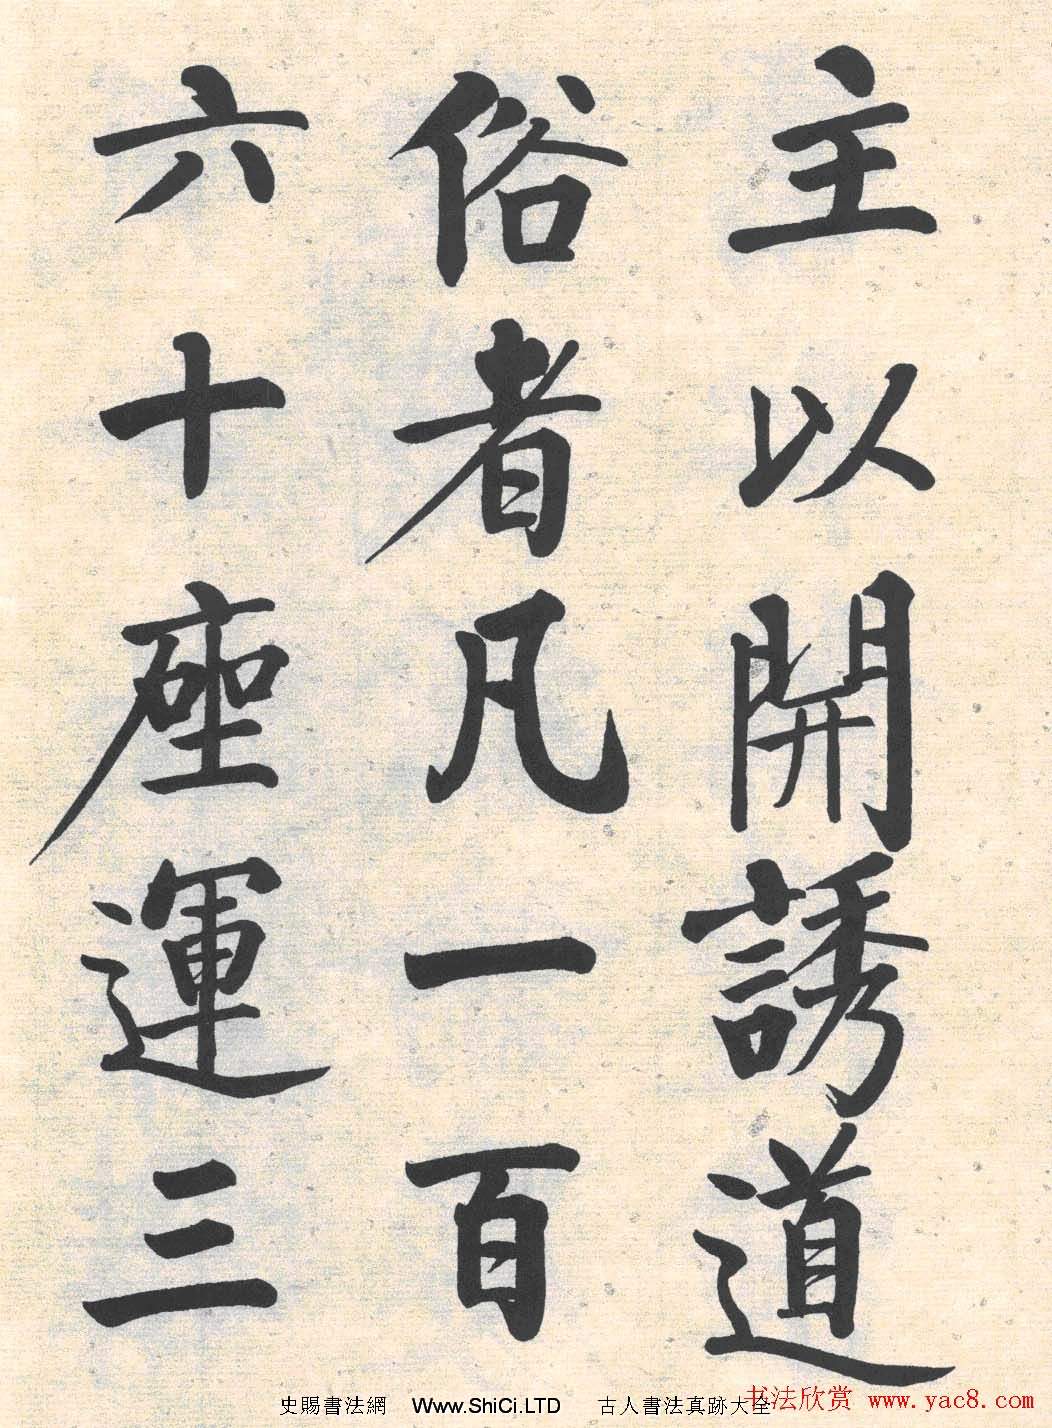 主以開誘道
俗者凡一百
六十座運三
史賜書法網 Www.ShiCi.LTD 古人書法真跡大全
书法欣赏 www.yac8.com